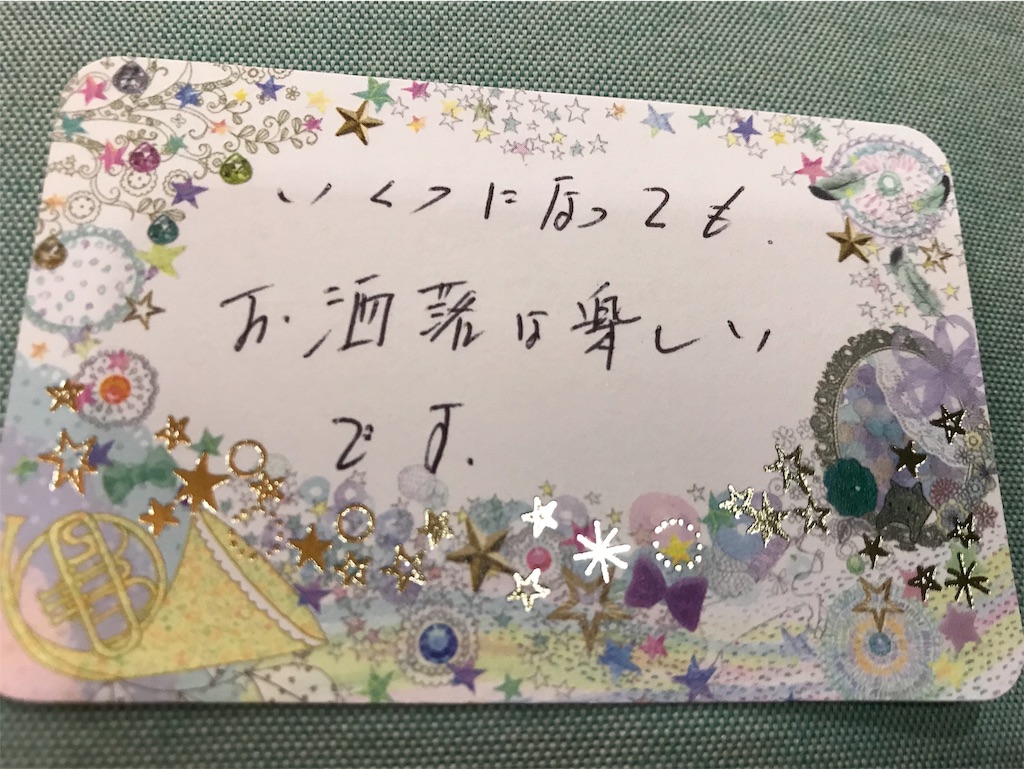 いくつになっても.
お洒落は楽しい
です.